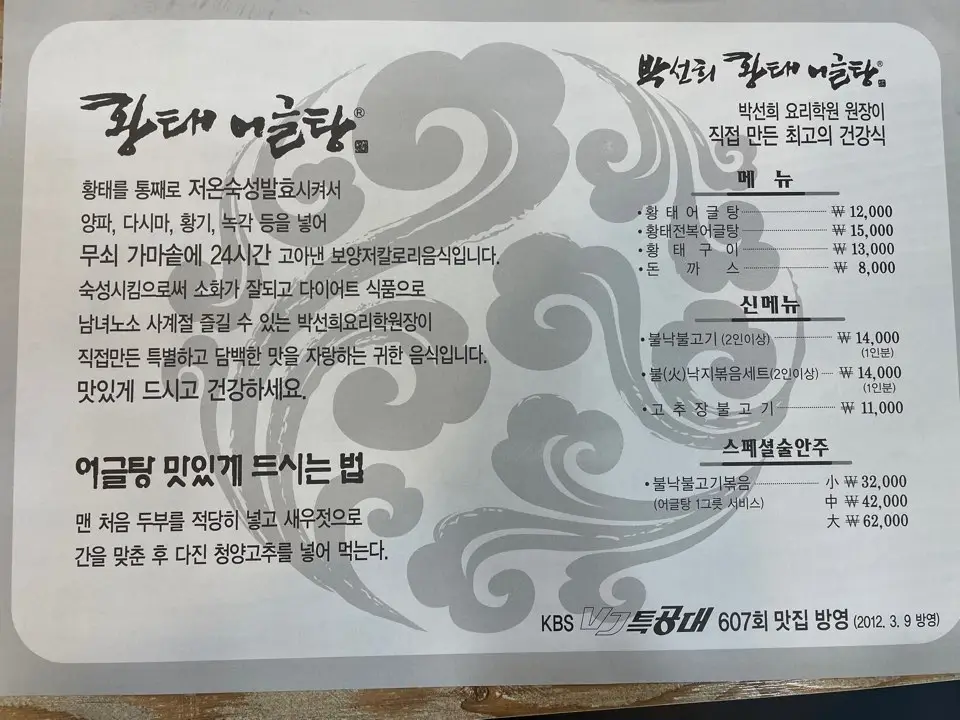 황태 어글탕®
황태를 통째로 저온숙성발효시켜서
양파, 다시마, 황기, 녹각 등을 넣어
무쇠 가마솥에 24시간 고아낸 보양저칼로리음식입니다.
숙성시킴으로써 소화가 잘되고 다이어트 식품으로
남녀노소 사계절 즐길 수 있는 박선희요리학원장이
직접만든 특별하고 담백한 맛을 자랑하는 귀한 음식입니다.
맛있게 드시고 건강하세요.
어글탕 맛있게 드시는 법
맨 처음 두부를 적당히 넣고 새우젓으로
간을 맞춘 후 다진 청양고추를 넣어 먹는다.
박선희 황태 어글탕®
박선희 요리학원 원장이
직접 만든 최고의 건강식
메 뉴
•황태어글탕 ₩ 12,000
•황태전복어글탕 ₩ 15,000
•황태구이 ₩ 13,000
•돈까스 ₩ 8,000
신메뉴
•불낙불고기 (2인이상) ₩ 14,000
(1인분)
•불(火)낙지볶음세트(2인이상) ₩ 14,000
(1인분)
•고추장불고기 ₩ 11,000
스페셜술안주
•불낙불고기볶음 小 ₩ 32,000
(어글탕 1그릇 서비스) 中 ₩ 42,000
大 ₩ 62,000
KBS VJ특공대 607회 맛집 방영 (2012. 3. 9 방영)